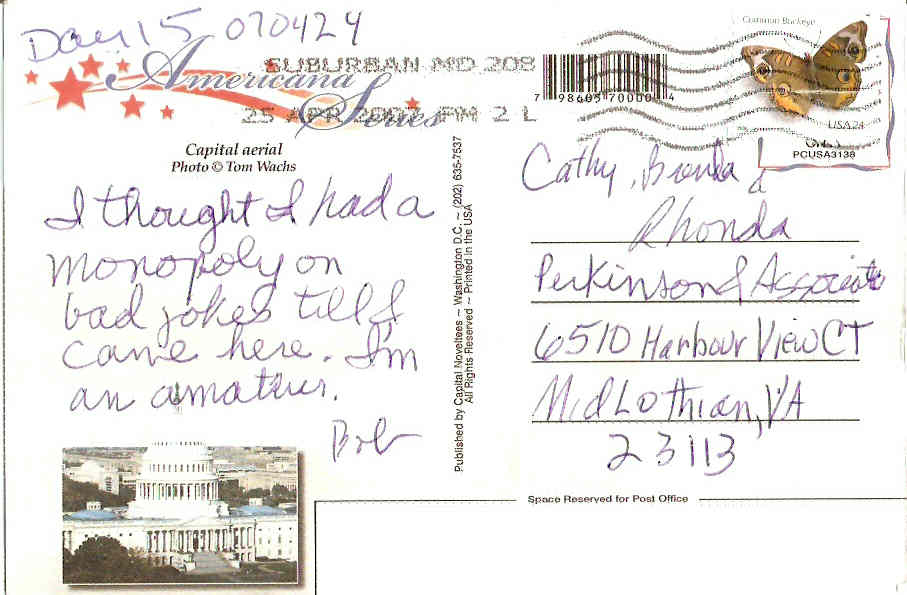 Day 15 070424
Americana Series
SUBURBAN MD 208
25 APR 2007 PM 2 L
7 98605 70000 4
Common Buckeye
USA24
PCUSA3138
Capital aerial
Photo © Tom Wachs
I thought I had a
monopoly on
bad jokes till I
came here. I'm
an amatur.
Bob
Published by Capital Noveltees ~ Washington D.C. ~ (202) 635-7537
All Rights Reserved ~ Printed in the USA
Cathy, Brenda &
Rhonda
Perkinson & Associates
6510 Harbour View CT
Midlothian, VA
23113
Space Reserved for Post Office